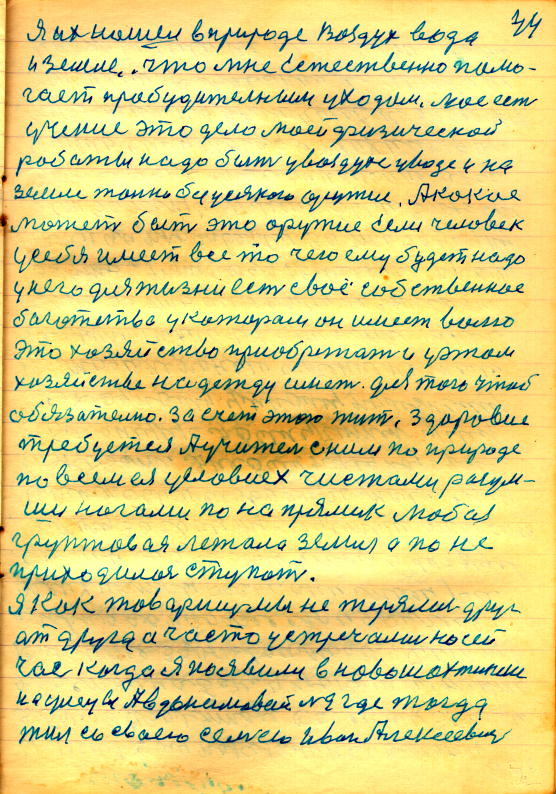 74
Я их нашел в природе Воздух вода
и земле, что мне естественно помо-
гает пробудителным уходом. мое ест
учение это дело моей физической
работы надо быт у воздухе уводе и на
земле точно без усякого оружие. А какое
может быт это оружие если человек
у себя имеет все то чего ему будет надо
у него для жизни ест своё собственное
богатства у котором он имеет волю
Это хозяйство приобретат и у этом
хозяйстве надежду имет. для того чтоб
обязателно. За счет этого жит. Здоровие
требуется А учител сним по природе
по всем ея условиех чистами
ногами по на прямик любая
групповая летала земля а по не
приходилос ступат.
Я как товарищ мы не теряли друг
от друга а часто устречались на сей
час когда Я появился в
на улецы где тогда
жил со своею семею Иван Алексеевич